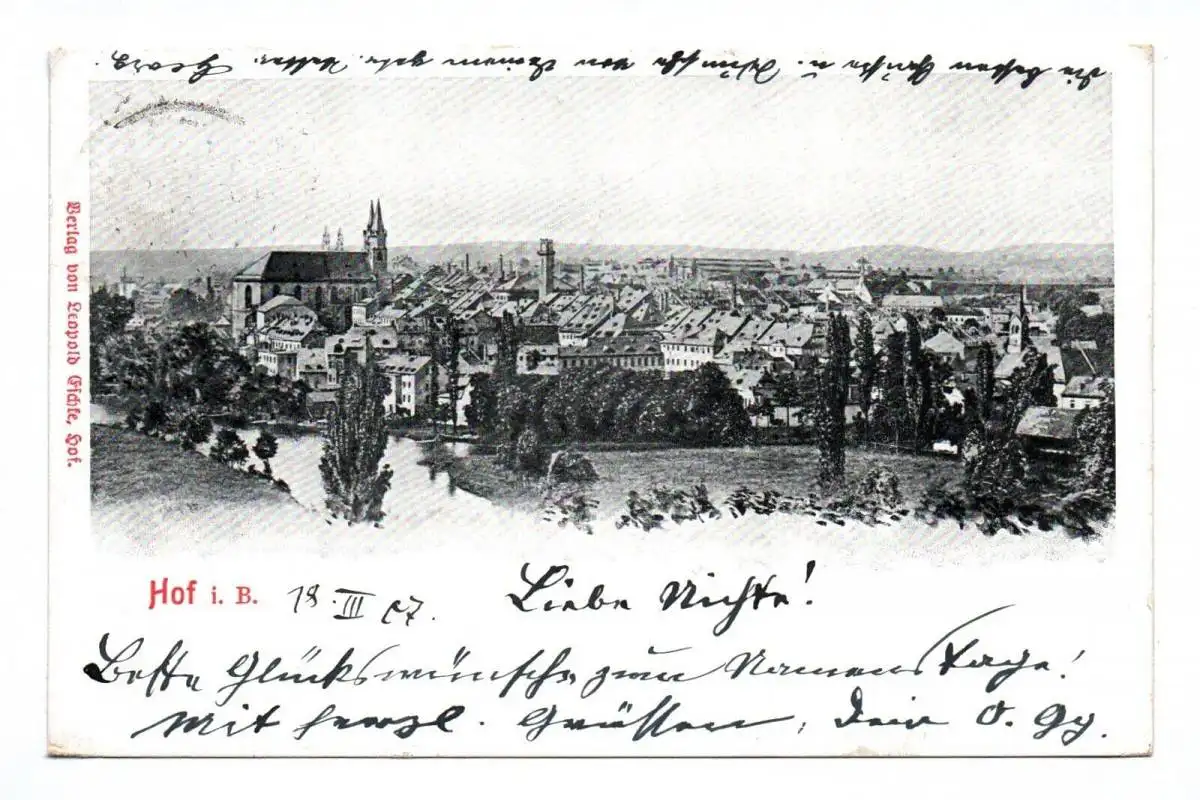 die besten Grüße u. Wünsche von Deinem gelb. Vetter Georg.
Verlag von Leopold Eichle, Hof.
Hof i. B. 18. III 07. Liebe Nichte!
Beste Glückswünsche zum Namenstage!
Mit herzl. Grüssen, Dein O. Gg.